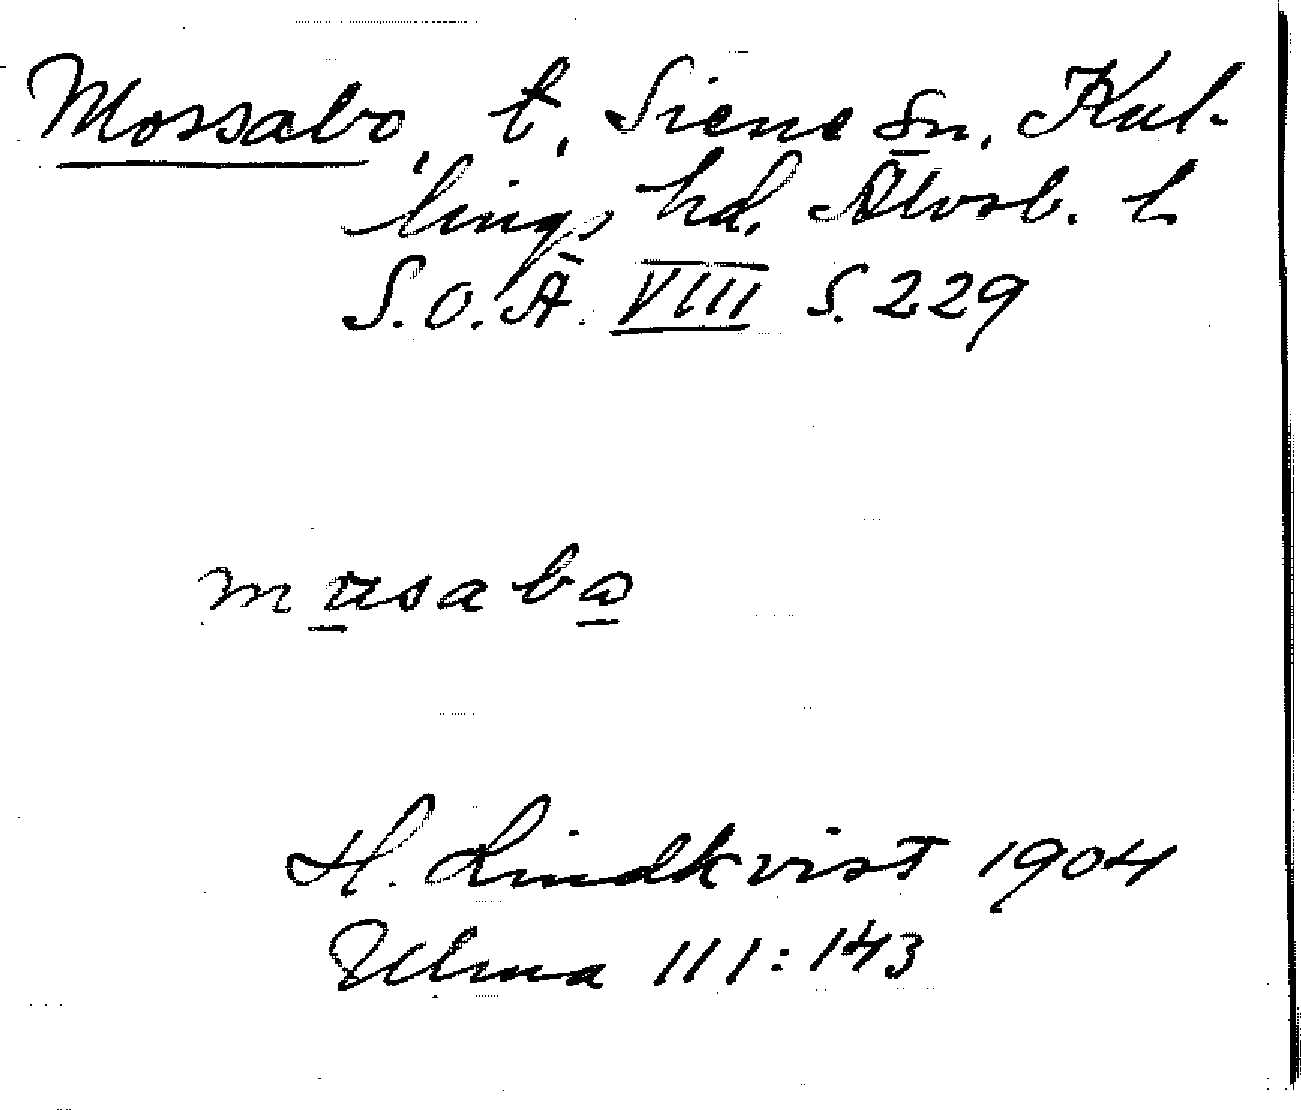 Mossabo, t. Siene sn. Kul-
lings hd. Älvsb. l
S.O.Ä. VIII s. 229
musabo
H. Lindkvist 1904
Ulma 111:143